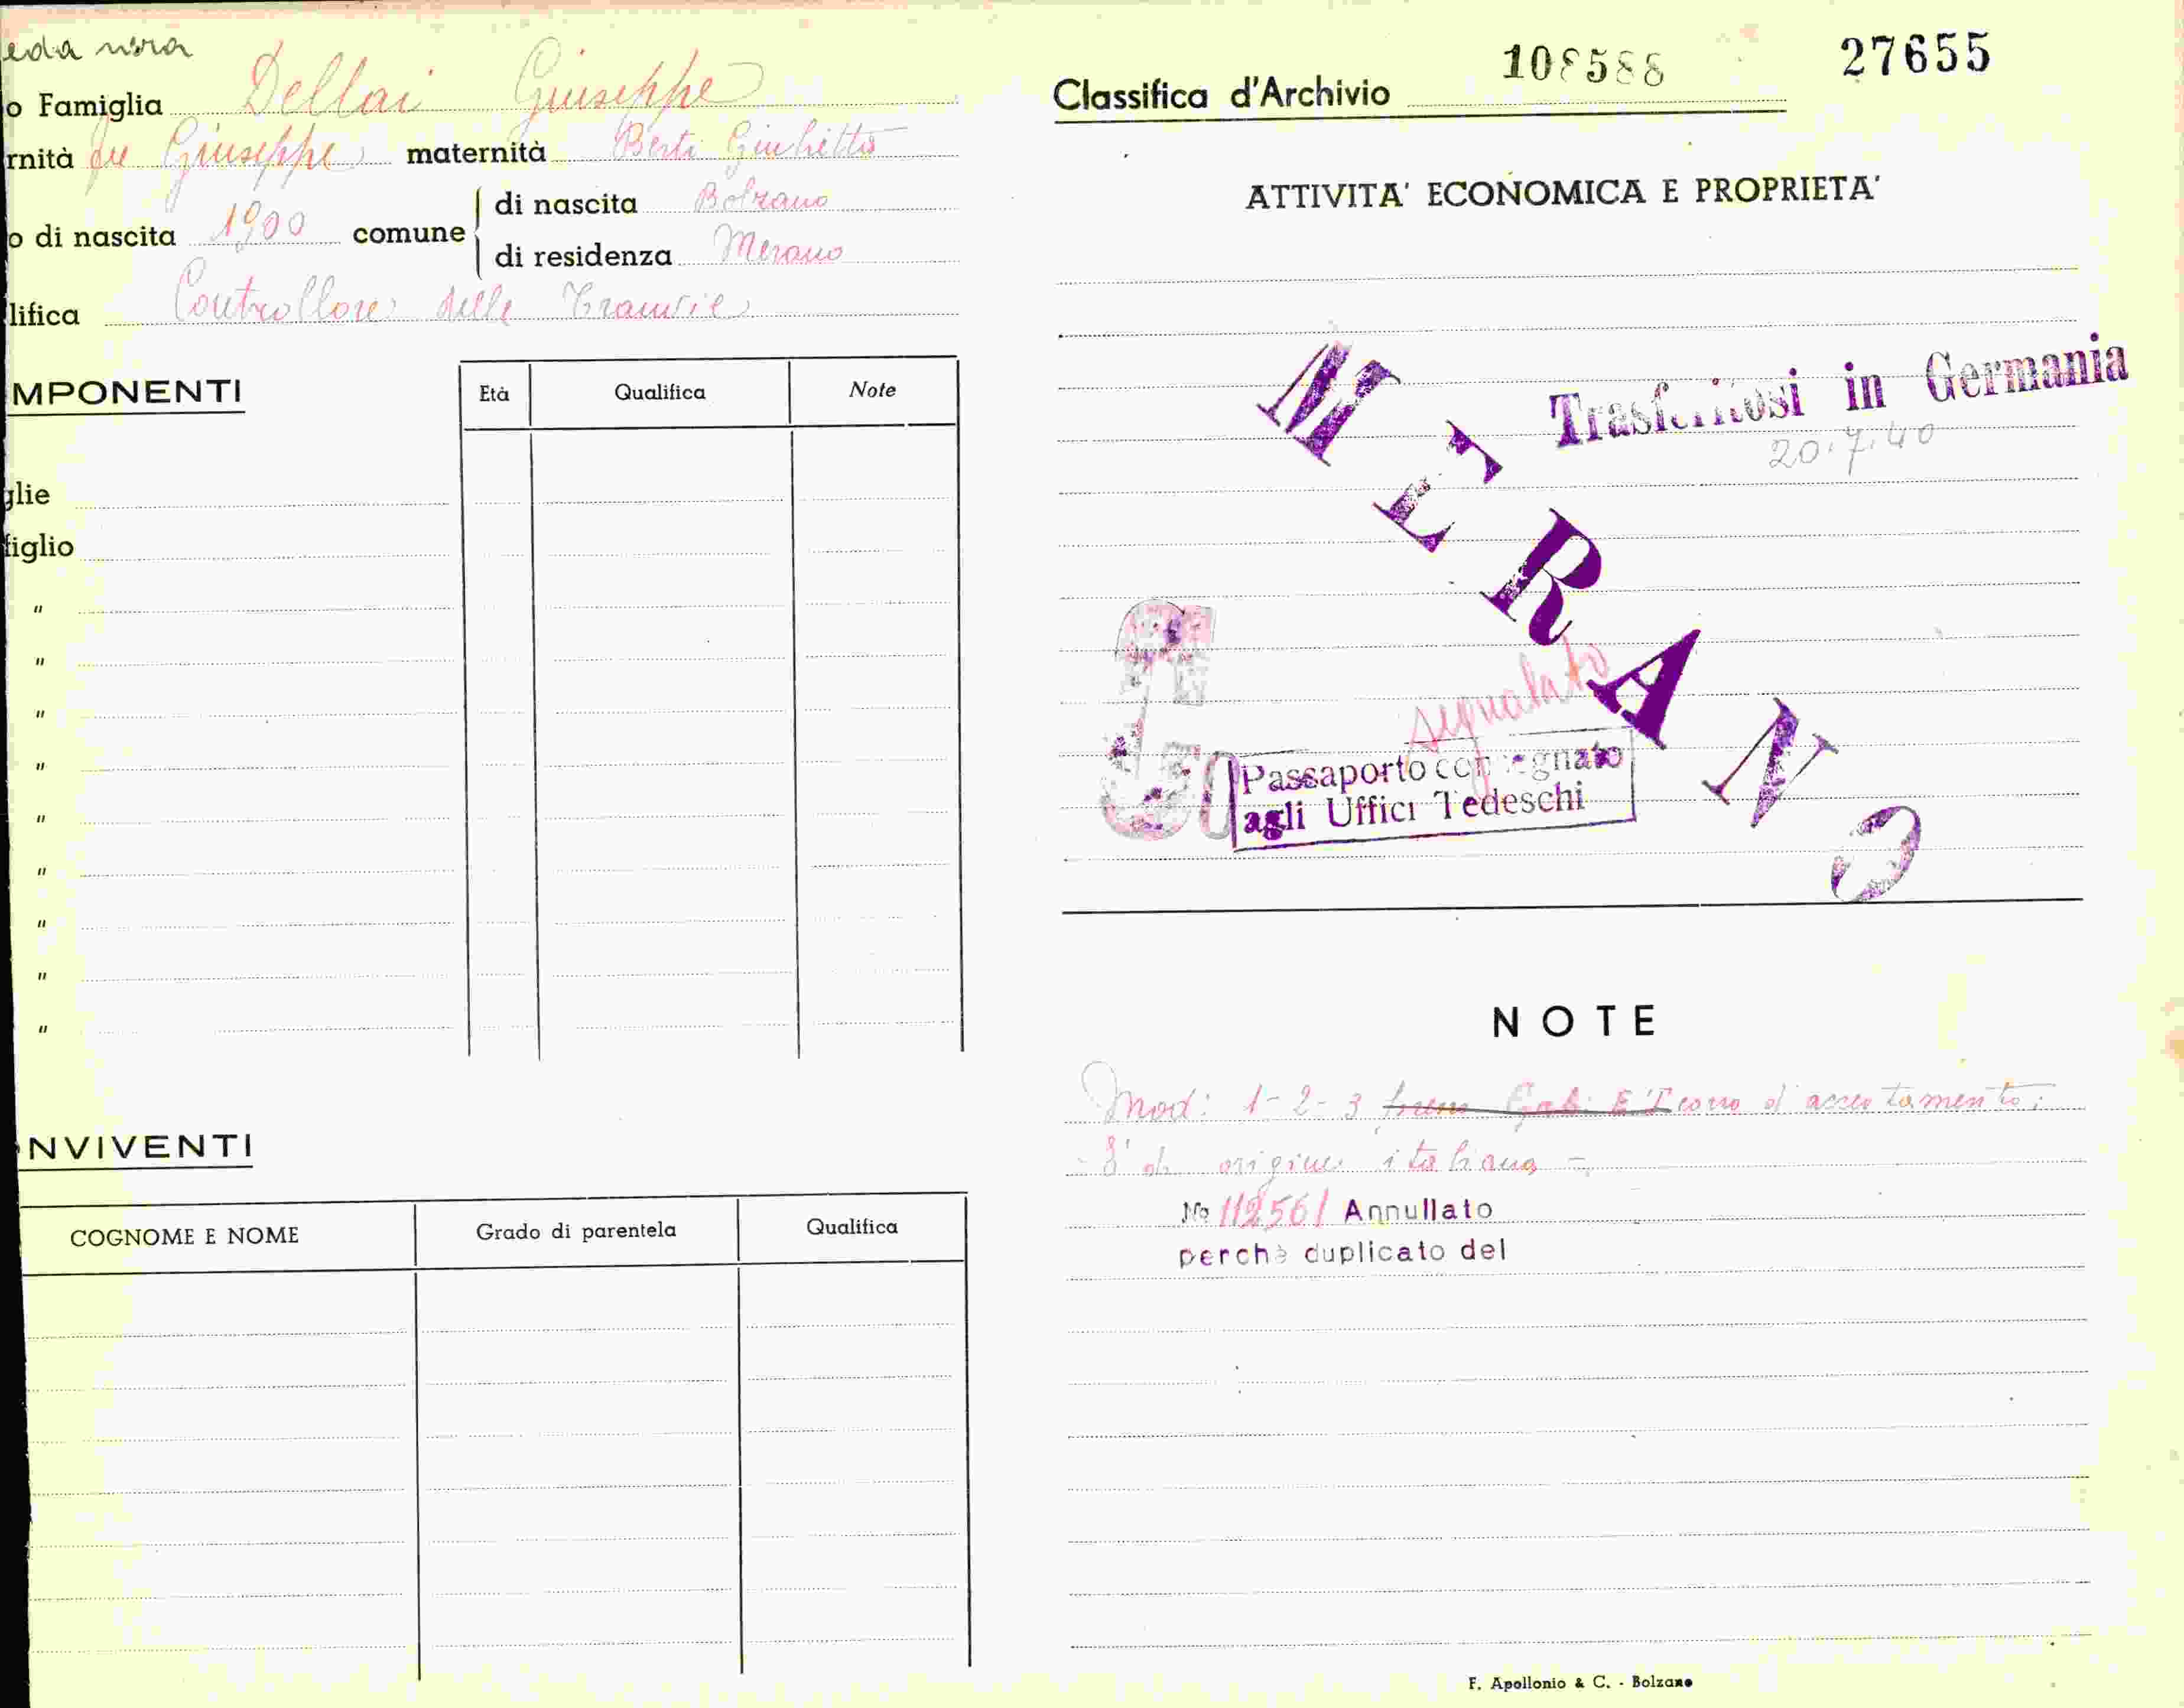 eda nera
o Famiglia Dellai Giuseppe
rnità fu Giuseppe maternità Berti Giulietta
o di nascita 1900 comune
di nascita Bolzano
di residenza Merano
lifica Controllore delle Tranvie
MPONENTI
Età Qualifica Note
glie
figlio
"
"
"
"
"
"
"
"
"
NVIVENTI
COGNOME E NOME Grado di parentela Qualifica
Classifica d'Archivio 108588 27655
ATTIVITA' ECONOMICA E PROPRIETA'
Trasferitosi in Germania
20.7.40
MERANO
segnalato
Passaporto consegnato
agli Uffici Tedeschi
NOTE
Mod: 1-2-3 corso d'accertamento;
- E' di origine italiana -
No 112561 Annullato
perchè duplicato del
F. Apollonio & C. - Bolzano